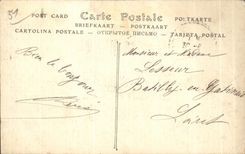 51
POST CARD Carte Postale POSTKARTE
BRIEFKAART — POSTKAART
CARTOLINA POSTALE — ОТКРЫТОЕ ПИСЬМО — TARJETA POSTAL
Bien le bonjour
Monsieur et Madame
Lesseur
en Gatinais
Loiret